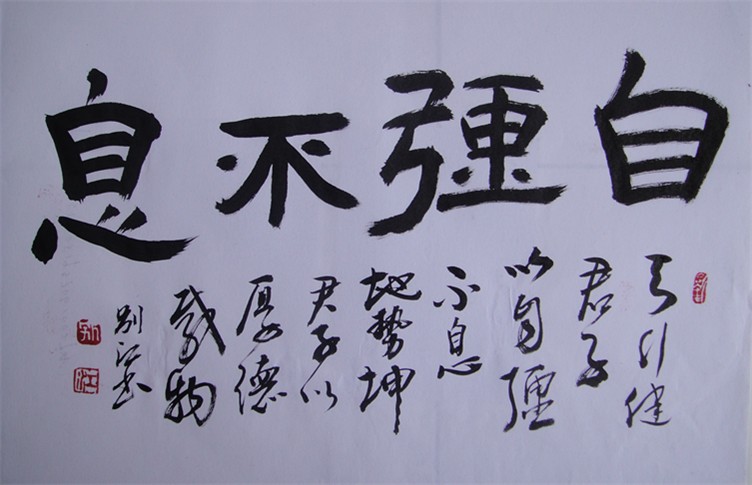 自强不息
天行健
君子
以自强
不息
地势坤
君子以
厚德
载物